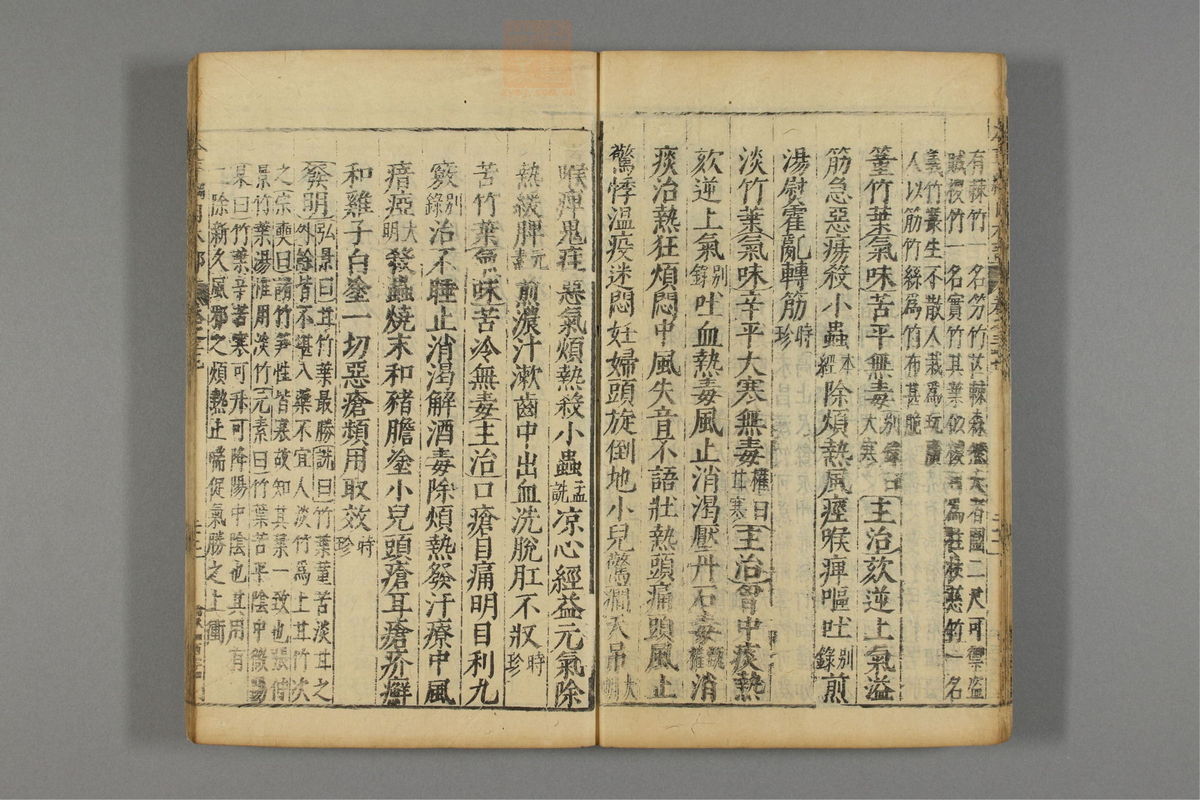 有棘竹一名笏竹芒棘森
大者圍二尺可禦盜
賊椶竹一名實竹其葉似椶
爲柱杖慈竹一名
義竹叢生不散人栽爲玩廣
人以筋竹絲爲竹布甚脆
篁竹葉氣味苦平無毒別錄曰大寒主治欬逆上氣溢
筋急惡瘍殺小蟲本經除煩熱風痙喉痺嘔吐別錄煎
湯熨霍亂轉筋時珍
淡竹葉氣味辛平大寒無毒權曰甘寒主治胷中痰熱
欬逆上氣別錄吐血熱毒風止消渴壓丹石毒甄權消
痰治熱狂煩悶中風失音不語壯熱頭痛頭風止
驚悸溫疫迷悶妊婦頭旋倒地小兒驚癇天吊大明
喉痺鬼疰惡氣煩熱殺小蟲孟詵凉心經益元氣除
熱緩脾元素煎濃汁漱齒中出血洗脫肛不收時珍
苦竹葉氣味苦冷無毒主治口瘡目痛明目利九
竅別錄治不睡止消渴解酒毒除煩熱發汗療中風
瘖瘂大明殺蟲燒末和豬膽塗小兒頭瘡耳瘡疥癬
和雞子白塗一切惡瘡頻用取效時珍
發明弘景曰甘竹葉最勝詵曰竹葉篁苦淡甘之
外餘皆不堪入藥不宜人淡竹爲上甘竹次
之宗奭曰諸竹笋性皆寒故知其葉一致也張仲
景竹葉湯惟用淡竹元素曰竹葉苦平陰中微陽
杲曰竹葉辛苦寒可升可降陽中陰也其用有
二除新久風邪之煩熱止喘促氣勝之上衝